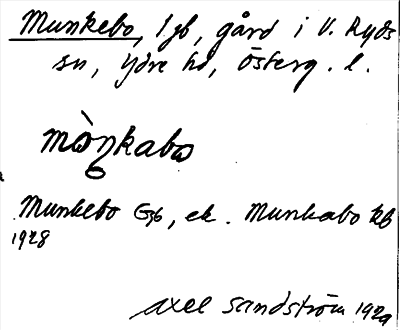 Munkebo, lgb, gård i V. Ryds
sn, Ydre hd, Österg. l.
Munkebo Gsb, ek. Munkabo kb
1928
Axel Sandström 1929